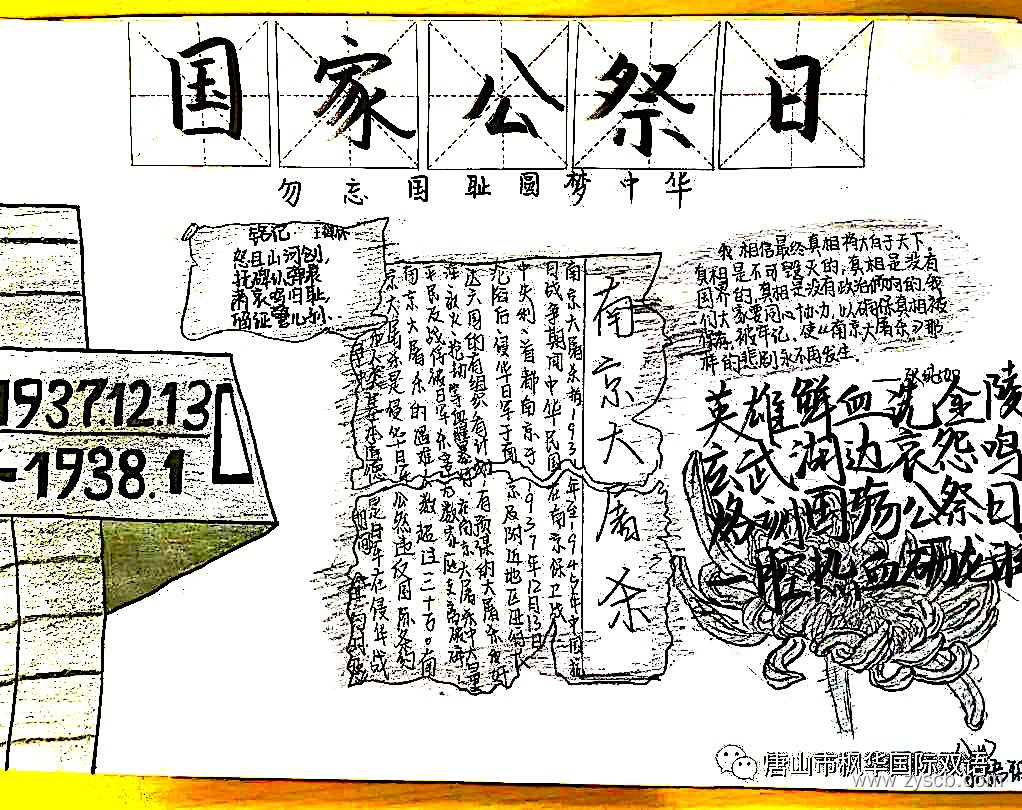 国家公祭日
勿忘国耻圆梦中华
铭记
怒目山河创,
抚碑
肃哀鸣旧耻,
1937.12.13
-1938.1
南京大屠杀
南京大屠杀指1937年至1945年中国抗
日战争期间中华民国在南京保卫战
中失利、首都南京于1937年12月13日
沦陷后侵华日军于南京及附近地区进行长
达六周的有组织有计划有预谋的大屠杀和奸
淫放火抢劫等
平民及战俘被日军杀害
南京大屠杀的遇难人数超过二十万。南
京大屠杀是侵华日军公然违反国际条约
我相信最终真相将大白于天下。
真相是不可毁灭的,真相是没有
国界的,真相是没有政治倾向的。我
们大家要同心协力,以确保真相被
保存,被牢记,使《南京大屠杀》那
样的悲剧永不再发生。
——张纯如
英雄鲜血洗金陵
玄武湖边哀怨鸣
国殇公祭日
一腔热血
唐山市枫华国际双语
www.zyscb.com